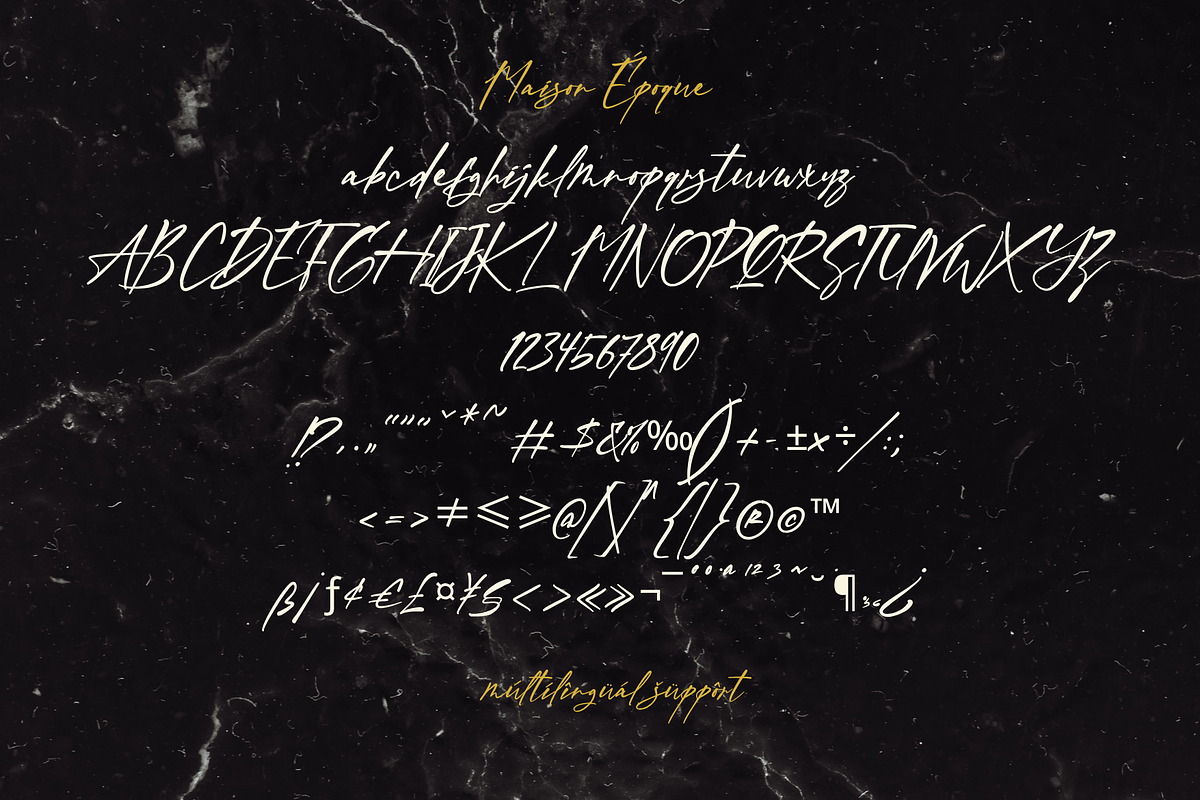 Maison Époque
abcdefghijklmnopqrstuvwxyz
ABCDEFGHIJKLMNOPQRSTUVWXYZ
1234567890
!?.,„“”‘’ˇ*~#$&%‰()+-±x÷/:;
<=>≠≤≥@[\]^{|}®©™
ßƒ¢€£¤¥§<>«»¬¯°º·ª123~˘¶¿
múltîlîngüál šüppôrt